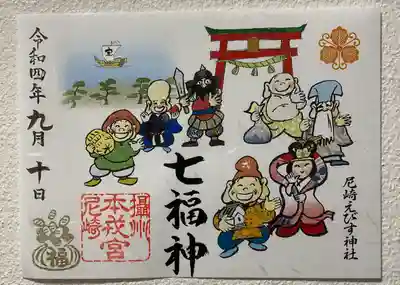 尼崎えびす神社
七福神
攝州
本戎宮
尼崎
令和四年九月十日
福